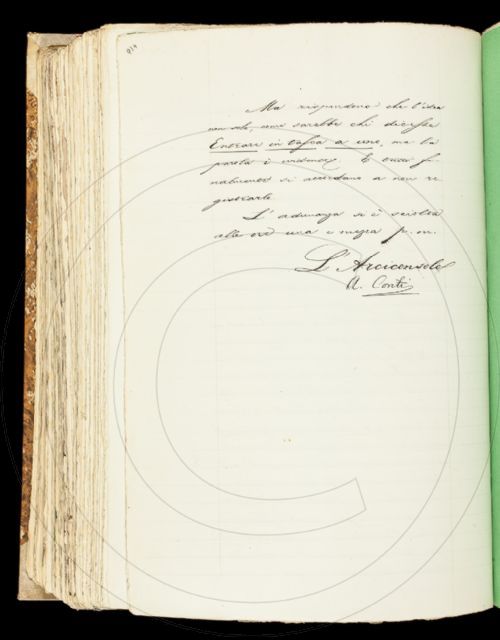 914
Ma rispondono che l'idea
non solo, come sarebbe chi dicesse
Entrare in tasca a uno, ma la
parola è
nalmente si accordano a non re
gistrarla.
L'adunanza si è sciolta
alle ore una e mezza p. m.
L'Arciconsolo
A. Conti